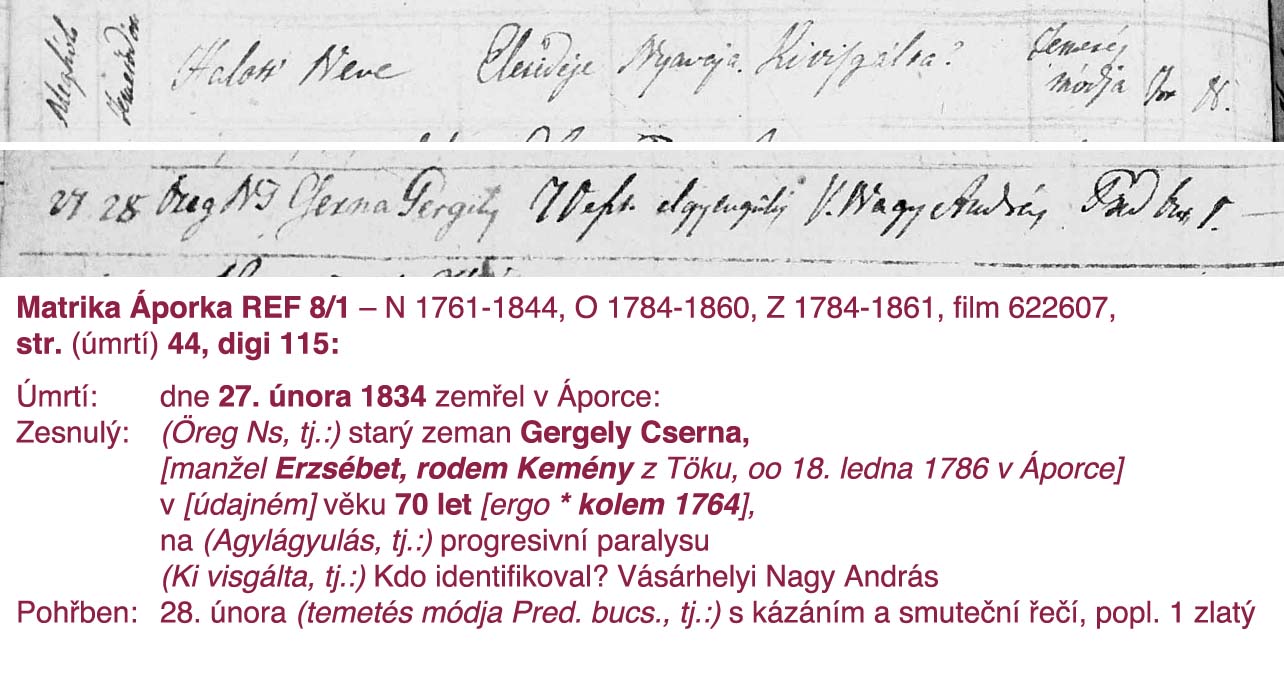 Meghólt
Temettetett
Halott Neve Eleideje Nyavaja. Kivisgálta? Temetés
módja for X.
27 28 Öreg NS Cserna Gergely 70 eszt. elgyengülés V. Nagy András Préd. buc. 1. —
Matrika Áporka REF 8/1 – N 1761-1844, O 1784-1860, Z 1784-1861, film 622607,
str. (úmrtí) 44, digi 115:
Úmrtí: dne 27. února 1834 zemřel v Áporce:
Zesnulý: (Öreg Ns, tj.:) starý zeman Gergely Cserna,
[manžel Erzsébet, rodem Kemény z Töku, oo 18. ledna 1786 v Áporce]
v [údajném] věku 70 let [ergo * kolem 1764],
na (Agylágyulás, tj.:) progresivní paralysu
(Ki visgálta, tj.:) Kdo identifikoval? Vásárhelyi Nagy András
Pohřben: 28. února (temetés módja Pred. bucs., tj.:) s kázáním a smuteční řečí, popl. 1 zlatý